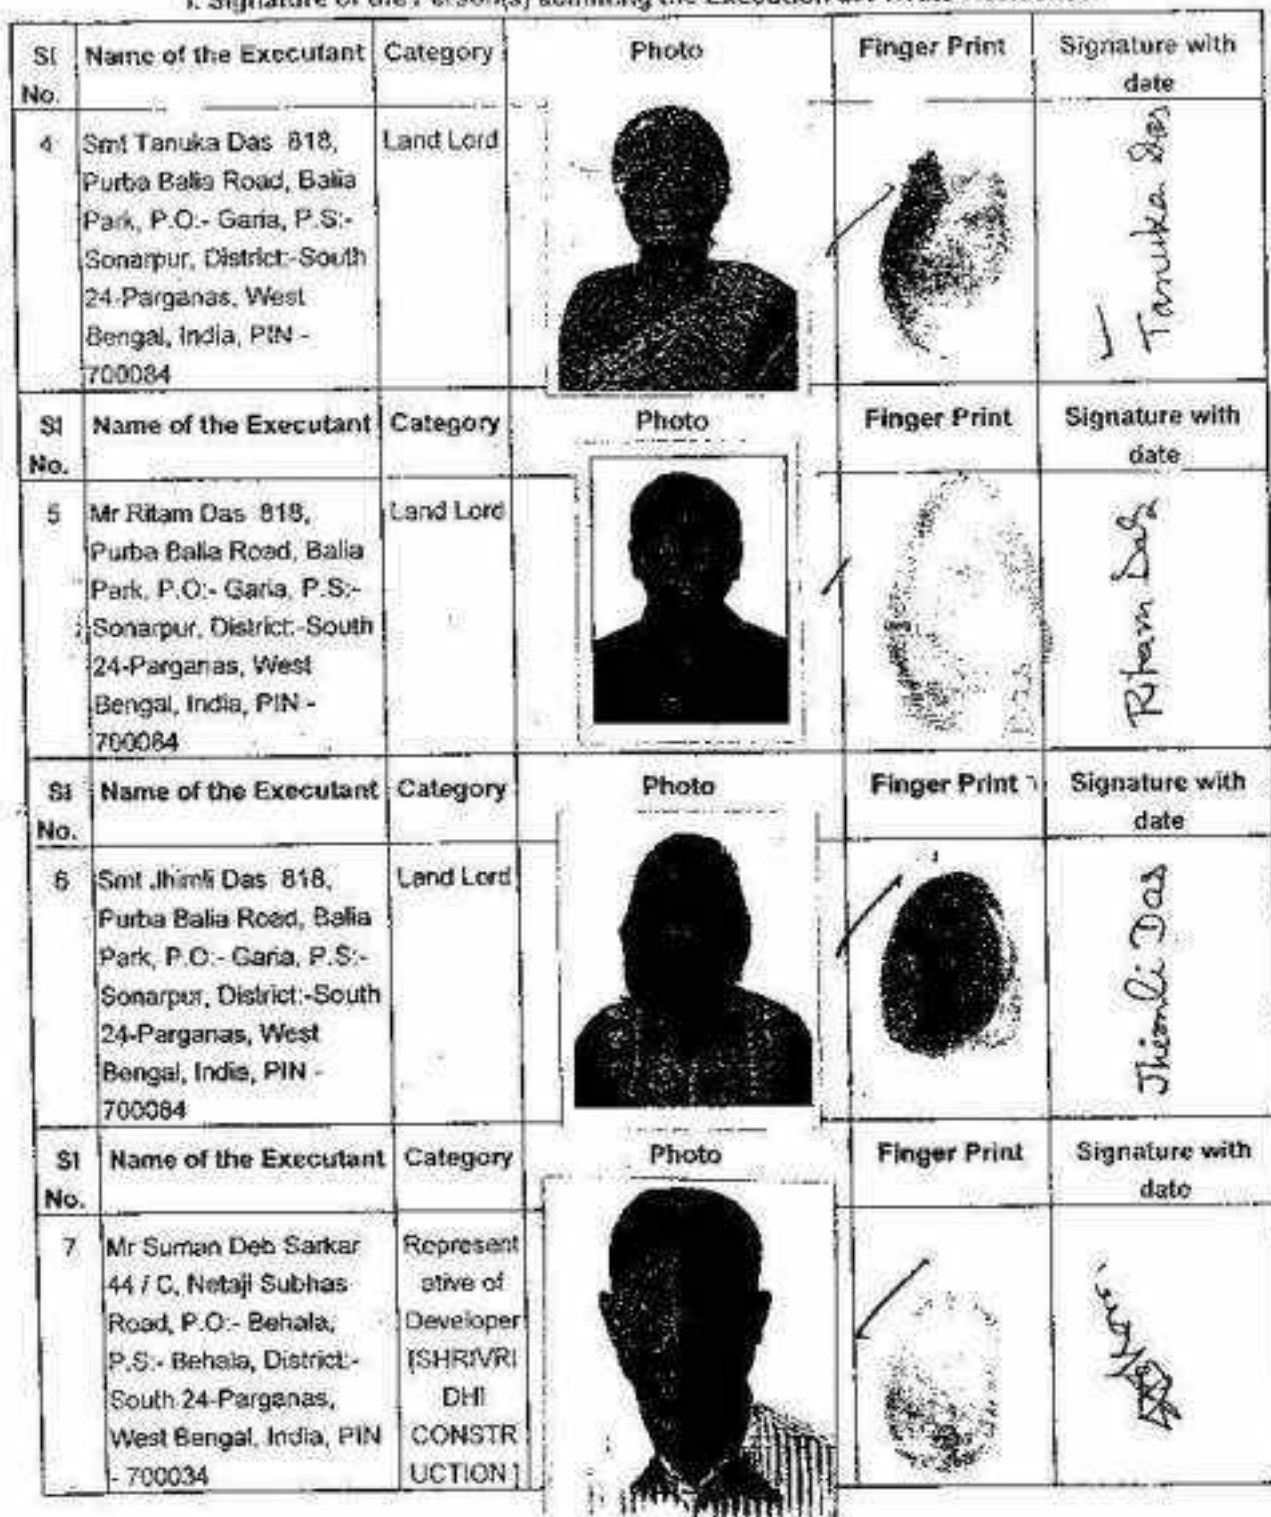 I. Signature of the Person(s) admitting the Execution at Private Residence.
Sl No. Name of the Executant Category Photo Finger Print Signature with date
4 Smt Tanuka Das 818, Land Lord
Purba Balia Road, Balia
Park, P.O:- Garia, P.S:-
Sonarpur, District:-South
24-Parganas, West
Bengal, India, PIN -
700084
Tanuka Das
Sl No. Name of the Executant Category Photo Finger Print Signature with date
5 Mr Ritam Das 818, Land Lord
Purba Balia Road, Balia
Park, P.O:- Garia, P.S:-
Sonarpur, District:-South
24-Parganas, West
Bengal, India, PIN -
700084
Ritam Das
Sl No. Name of the Executant Category Photo Finger Print Signature with date
6 Smt Jhimli Das 818, Land Lord
Purba Balia Road, Balia
Park, P.O:- Garia, P.S:-
Sonarpur, District:-South
24-Parganas, West
Bengal, India, PIN -
700084
Jhimli Das
Sl No. Name of the Executant Category Photo Finger Print Signature with date
7 Mr Suman Deb Sarkar
44 / C, Netaji Subhas
Road, P.O:- Behala,
P.S:- Behala, District:-
South 24-Parganas,
West Bengal, India, PIN
- 700034
Represent
ative of
Developer
[SHRIVRI
DHI
CONSTR
UCTION ]